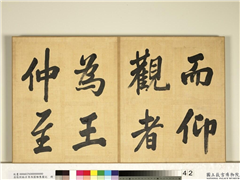 而仰
觀者
為王
仲至
42
國立故宮博物院